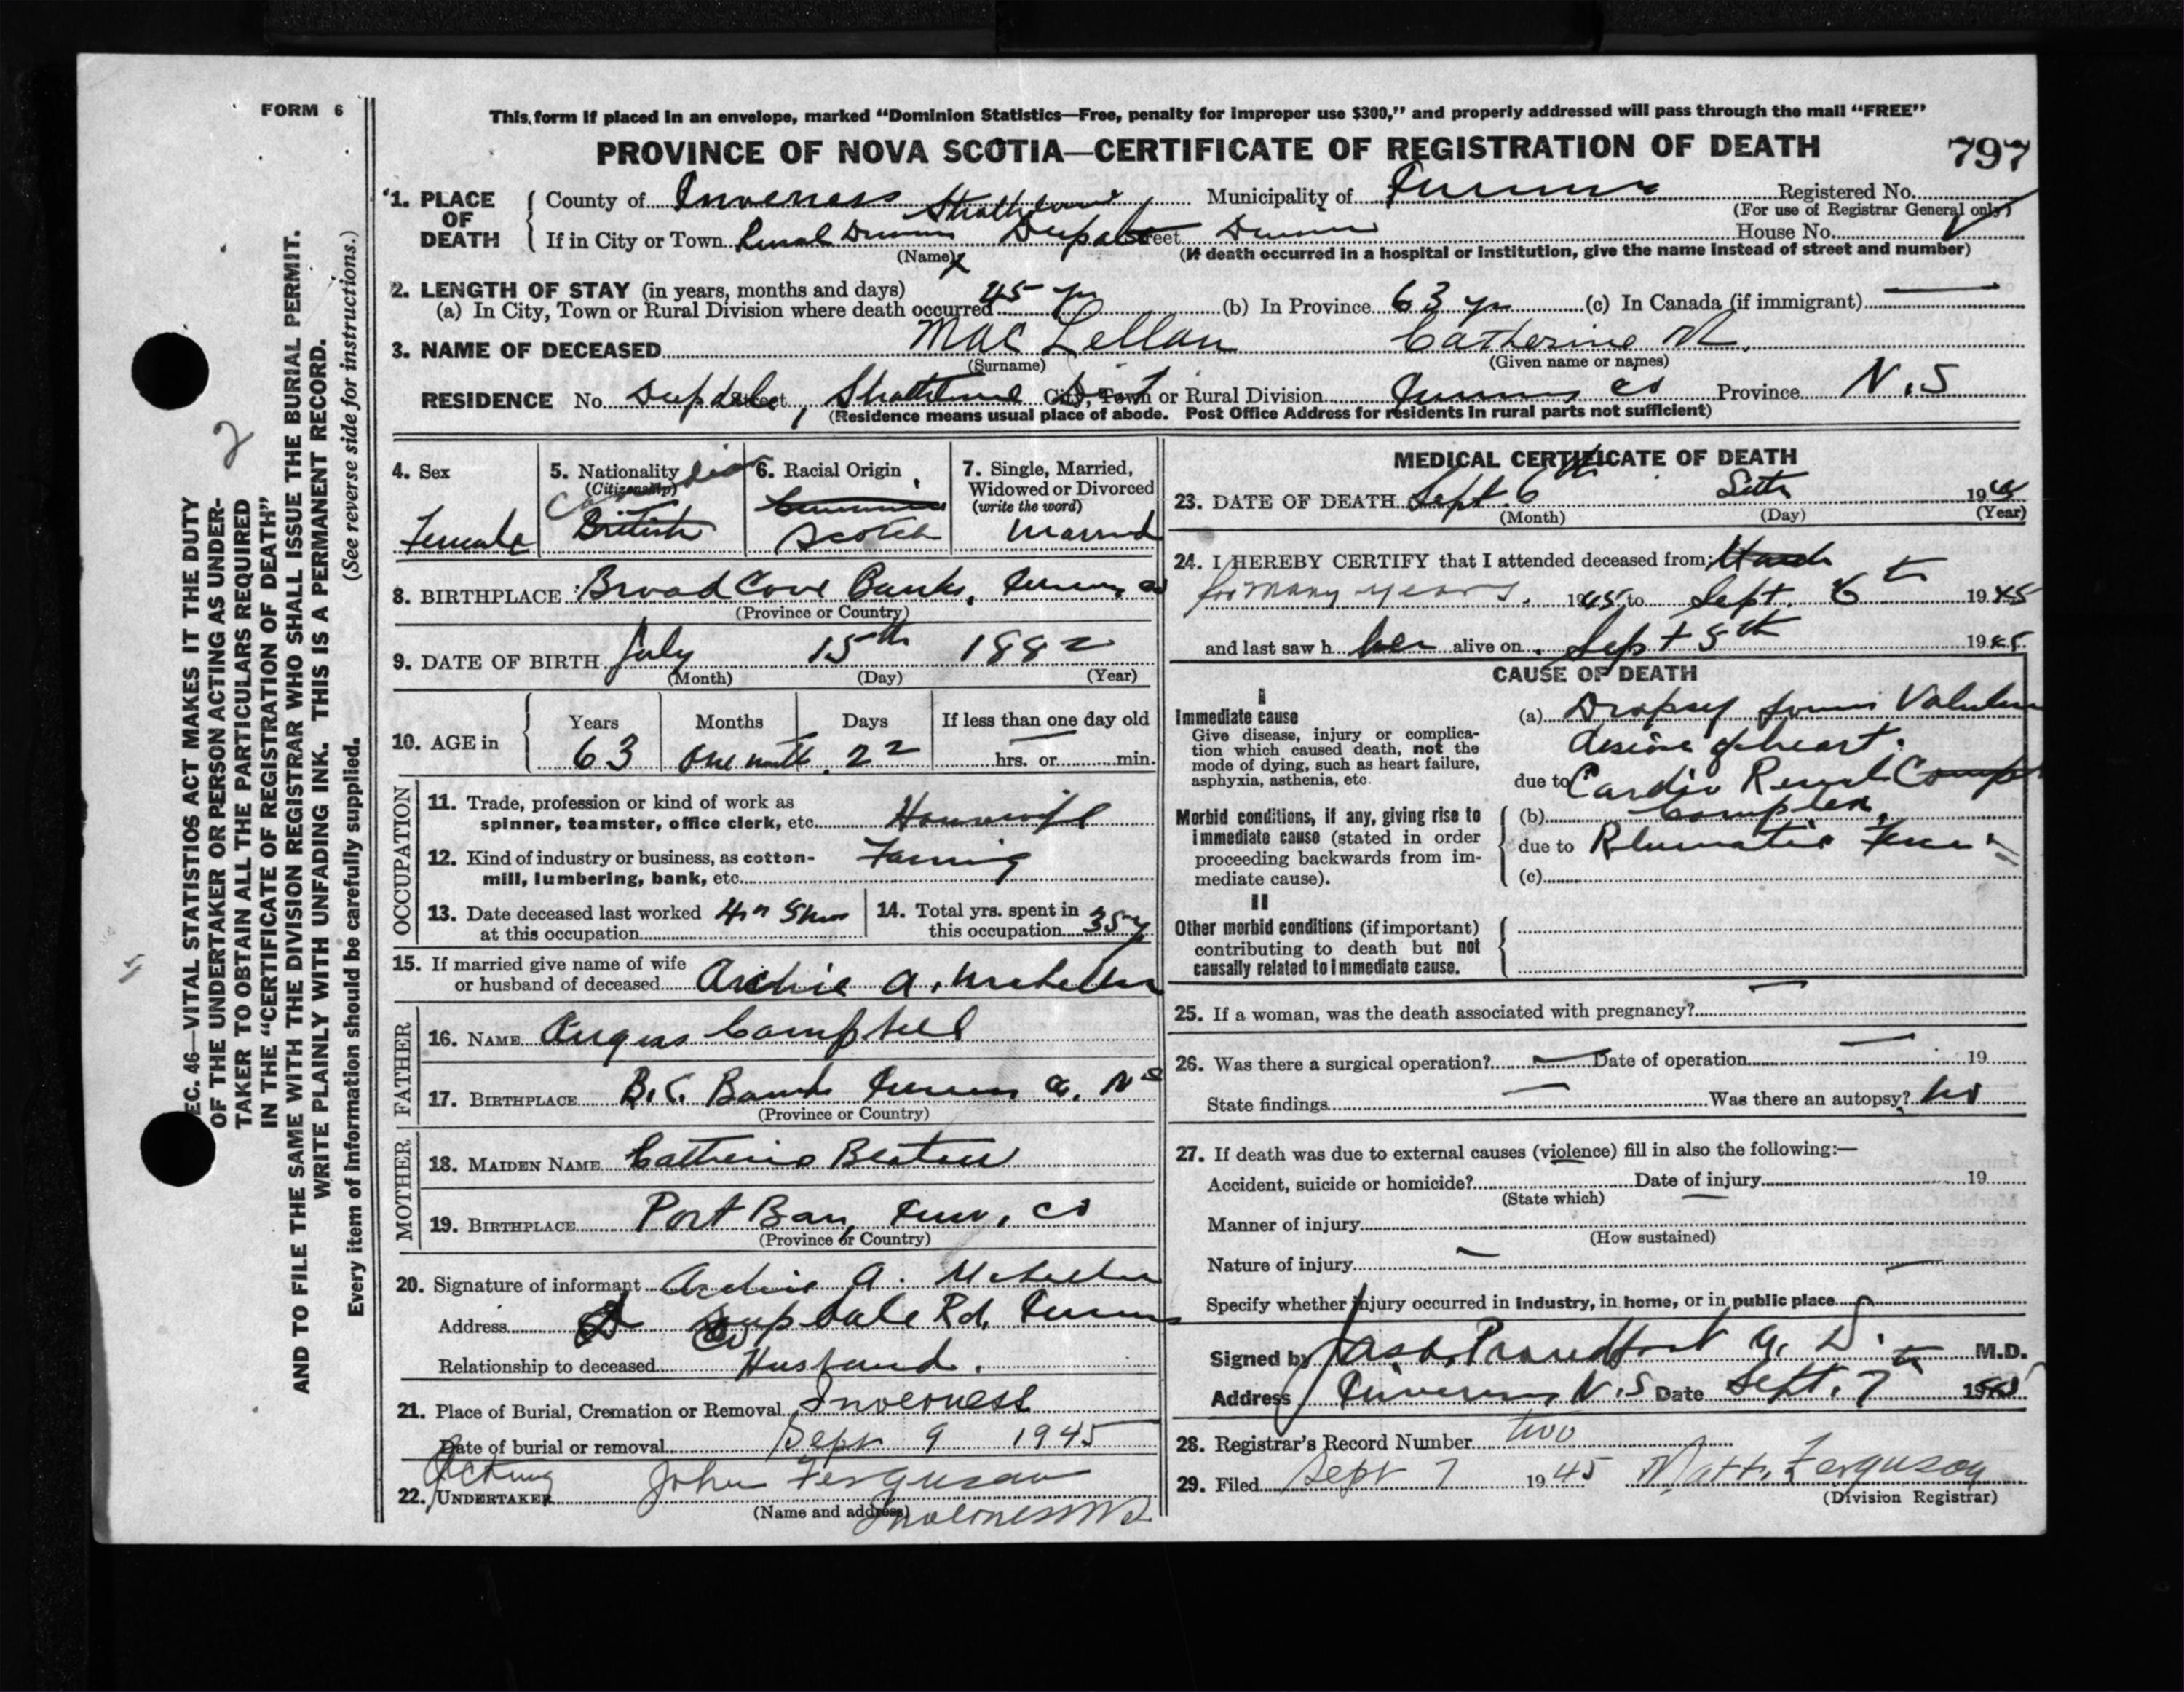 FORM 6
This form if placed in an envelope, marked "Dominion Statistics—Free, penalty for improper use $300," and properly addressed will pass through the mail "FREE"
PROVINCE OF NOVA SCOTIA—CERTIFICATE OF REGISTRATION OF DEATH 797
1. PLACE OF DEATH { County of Inverness Municipality of Registered No.
(For use of Registrar General only)
If in City or Town Rural Street House No.
(Name) (If death occurred in a hospital or institution, give the name instead of street and number)
2. LENGTH OF STAY (in years, months and days)
(a) In City, Town or Rural Division where death occurred 45 yr (b) In Province 63 yr (c) In Canada (if immigrant) —
3. NAME OF DECEASED MacLellan Catherine
(Surname) (Given name or names)
RESIDENCE No. Street City, Town or Rural Division Province N.S
(Residence means usual place of abode. Post Office Address for residents in rural parts not sufficient)
4. Sex Female
5. Nationality (Citizenship) Canadian British
6. Racial Origin Scotch
7. Single, Married, Widowed or Divorced (write the word) Married
8. BIRTHPLACE Broad Cove Banks,
(Province or Country)
9. DATE OF BIRTH July 15th 1882
(Month) (Day) (Year)
10. AGE in { Years Months Days If less than one day old
63 One month 22 hrs. or min.
OCCUPATION
11. Trade, profession or kind of work as spinner, teamster, office clerk, etc. Housewife
12. Kind of industry or business, as cotton-mill, lumbering, bank, etc. Farming
13. Date deceased last worked at this occupation
14. Total yrs. spent in this occupation 35 y
15. If married give name of wife or husband of deceased Archie A. McLellan
FATHER
16. NAME Angus Campbell
17. BIRTHPLACE B.C. Banks NS
(Province or Country)
MOTHER
18. MAIDEN NAME Catherine Beaton
19. BIRTHPLACE Port Ban, Inv. Co
(Province or Country)
20. Signature of informant Archie A. McLellan
Address Deepdale Rd.
Relationship to deceased Husband.
21. Place of Burial, Cremation or Removal Inverness
Date of burial or removal Sept 9 1945
Acting
22. UNDERTAKER John Ferguson
(Name and address) Inverness NS
MEDICAL CERTIFICATE OF DEATH
23. DATE OF DEATH Sept. 6th 1945
(Month) (Day) (Year)
24. I HEREBY CERTIFY that I attended deceased from
for many years. 1945 to Sept. 6th 1945
and last saw h her alive on Sept 5th 1945
CAUSE OF DEATH
I
Immediate cause
Give disease, injury or complication which caused death, not the mode of dying, such as heart failure, asphyxia, asthenia, etc.
(a) Dropsy from Valvular
disease of heart.
due to Cardio Renal Comp
Morbid conditions, if any, giving rise to immediate cause (stated in order proceeding backwards from immediate cause).
(b) Complex.
due to Rheumatic Fever
(c)
II
Other morbid conditions (if important) contributing to death but not causally related to immediate cause.
25. If a woman, was the death associated with pregnancy? —
26. Was there a surgical operation? — Date of operation — 19
State findings — Was there an autopsy? No
27. If death was due to external causes (violence) fill in also the following:—
Accident, suicide or homicide? Date of injury 19
(State which)
Manner of injury
(How sustained)
Nature of injury
Specify whether injury occurred in industry, in home, or in public place
Signed by M.D.
Address Inverness, N.S Date Sept. 7th 1945
28. Registrar's Record Number two
29. Filed Sept 7 1945 Matt. Ferguson
(Division Registrar)
2
SEC. 46—VITAL STATISTICS ACT MAKES IT THE DUTY
OF THE UNDERTAKER OR PERSON ACTING AS UNDER-
TAKER TO OBTAIN ALL THE PARTICULARS REQUIRED
IN THE "CERTIFICATE OF REGISTRATION OF DEATH"
AND TO FILE THE SAME WITH THE DIVISION REGISTRAR WHO SHALL ISSUE THE BURIAL PERMIT.
WRITE PLAINLY WITH UNFADING INK. THIS IS A PERMANENT RECORD.
Every item of information should be carefully supplied. (See reverse side for instructions.)